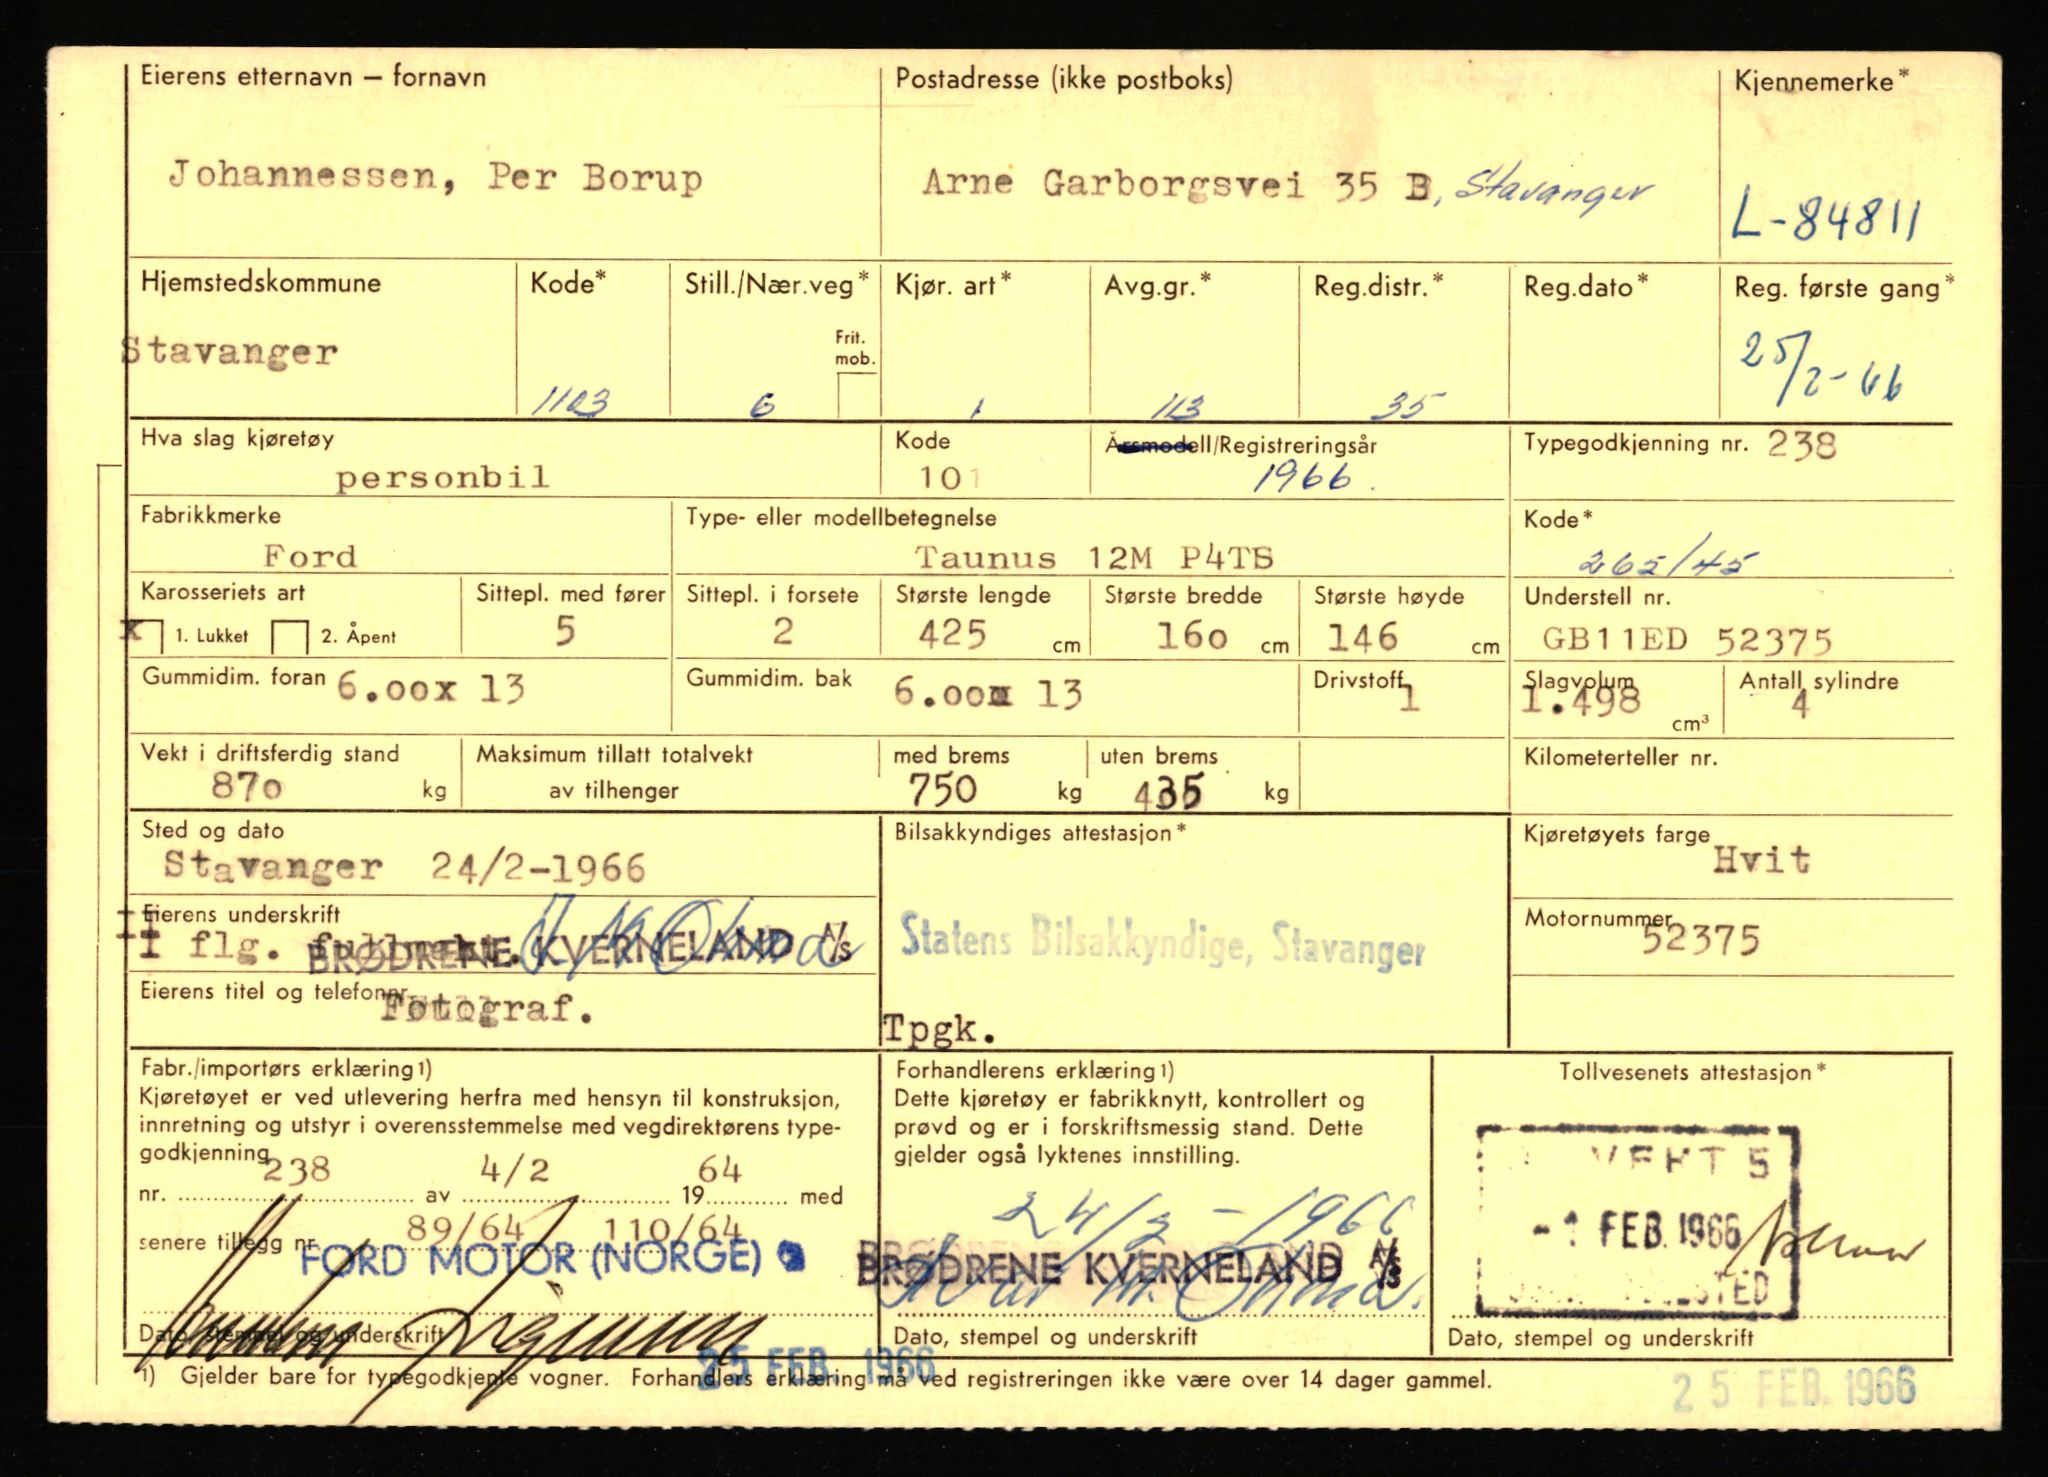 Eierens etternavn – fornavn
Postadresse (ikke postboks)
Kjennemerke*
Johannessen, Per Borup
Arne Garborgsvei 35 B, Stavanger
L-84811
Hjemstedskommune
Kode*
Still./Nær.veg*
Kjør. art*
Avg.gr.*
Reg.distr.*
Reg.dato*
Reg. første gang*
Stavanger
Frit. mob.
1103
6
1
113
35
25/2-66
Hva slag kjøretøy
Kode
Årsmodell/Registreringsår
Typegodkjenning nr. 238
personbil
101
1966.
Fabrikkmerke
Type- eller modellbetegnelse
Kode*
Ford
Taunus 12M P4TS
265/45
Karosseriets art
Sittepl. med fører
Sittepl. i forsete
Største lengde
Største bredde
Største høyde
Understell nr.
x 1. Lukket 2. Åpent
5
2
425 cm
160 cm
146 cm
GB11ED 52375
Gummidim. foran 6.00x 13
Gummidim. bak 6.00x 13
Drivstoff 1
Slagvolum 1.498 cm³
Antall sylindre 4
Vekt i driftsferdig stand
Maksimum tillatt totalvekt
med brems
uten brems
Kilometerteller nr.
870 kg
av tilhenger
750 kg
435 kg
Sted og dato
Bilsakkyndiges attestasjon*
Kjøretøyets farge
Stavanger 24/2-1966
Hvit
Eierens underskrift
Motornummer
I flg. fullmakt.
BRØDRENE KVERNELAND A/s
Statens Bilsakkyndige, Stavanger
52375
Eierens titel og telefonnr.
Fotograf.
Tpgk.
Fabr./importørs erklæring 1)
Kjøretøyet er ved utlevering herfra med hensyn til konstruksjon,
innretning og utstyr i overensstemmelse med vegdirektørens type-
godkjenning
nr. 238 av 4/2 19 64 med
senere tillegg nr. 89/64 110/64
FORD MOTOR (NORGE)
Dato, stempel og underskrift
Forhandlerens erklæring 1)
Dette kjøretøy er fabrikknytt, kontrollert og
prøvd og er i forskriftsmessig stand. Dette
gjelder også lyktenes innstilling.
24/2-1966
BRØDRENE KVERNELAND A/s
Dato, stempel og underskrift
Tollvesenets attestasjon*
VEKT 5
-1 FEB. 1966
Dato, stempel og underskrift
25 FEB. 1966
1) Gjelder bare for typegodkjente vogner. Forhandlers erklæring må ved registreringen ikke være over 14 dager gammel.
25 FEB. 1966